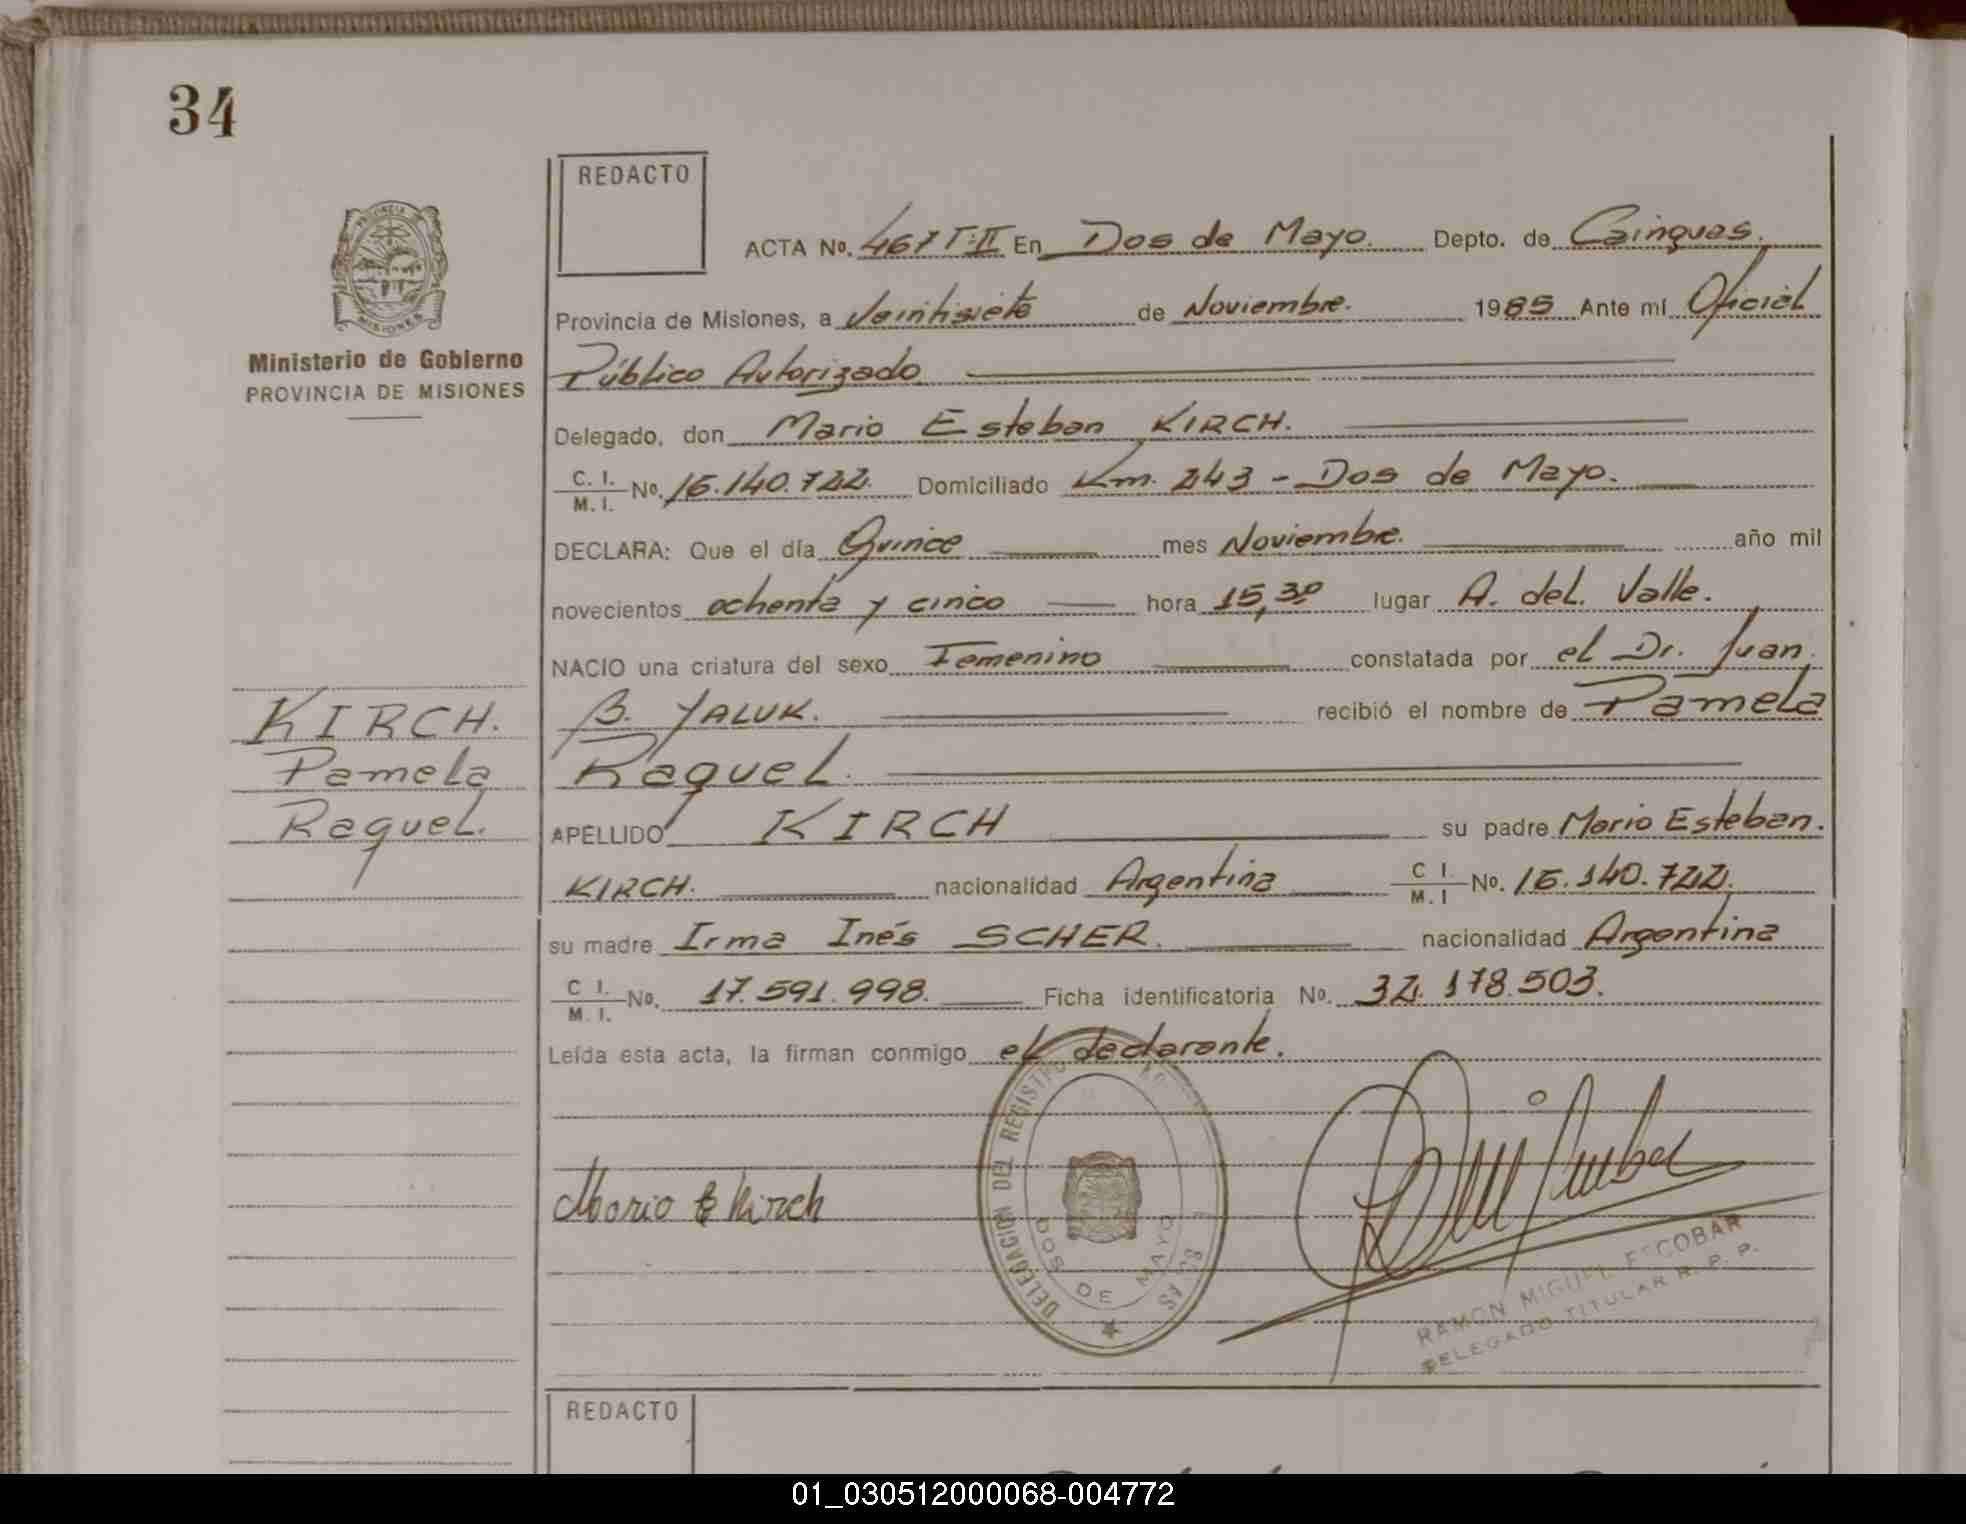 34
REDACTO
PROVINCIA DE
MISIONES
Ministerio de Gobierno
PROVINCIA DE MISIONES
ACTA No. 467 T:II En Dos de Mayo. Depto. de Cainguas.
Provincia de Misiones, a Veintisiete de Noviembre. 1985 Ante mí Oficial
Público Autorizado
Delegado, don Mario Esteban KIRCH.
C. I. / M. I. No. 16.140.722. Domiciliado Km. 243 - Dos de Mayo.
DECLARA: Que el día Quince mes Noviembre. año mil
novecientos ochenta y cinco hora 15,30 lugar A. del. Valle.
NACIO una criatura del sexo Femenino constatada por el Dr. Juan.
B. YALUK. recibió el nombre de Pamela
Raquel.
KIRCH.
Pamela
Raquel.
APELLIDO KIRCH su padre Mario Esteban.
KIRCH. nacionalidad Argentina C I. / M. I No. 16.140.722.
su madre Irma Inés SCHER. nacionalidad Argentina
C I. / M. I. No. 17.591.998. Ficha identificatoria No. 32.178.503.
Leída esta acta, la firman conmigo el declarante.
DELEGACION DEL REGISTRO
DOS DE MAYO
Mario E Kirch
RAMON MIGUEL ESCOBAR
DELEGADO TITULAR R. P. P.
REDACTO
01_030512000068-004772